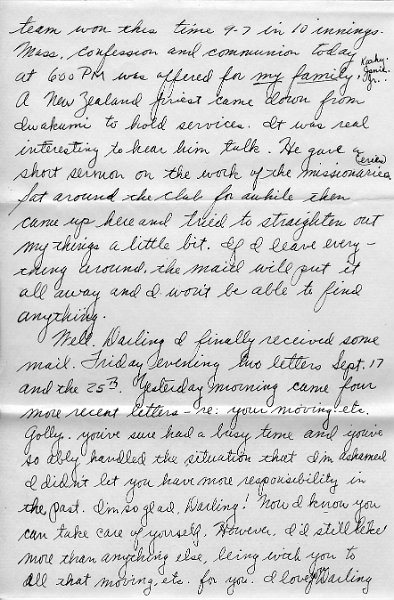 team won this time 9-7 in 10 innings.
Mass, confession and communion today
at 600 PM was offered for my family, Kathy. Janie. Jr.
A New Zealand priest came down from
Iwakuni to hold services. It was real
interesting to hear him talk. He gave a
short sermon on the work of the missionaries
Sat around the club for awhile then
came up here and tried to straighten out
my things a little bit. If I leave every-
thing around, the maid will put it
all away and I won't be able to find
anything.
Well, Darling I finally received some
mail. Friday evening two letters Sept. 17
and the 25th. Yesterday morning came four
more recent letters - re: your moving. etc.
Golly. you've sure had a busy time and you've
so ably handled the situation that I'm ashamed
I didn't let you have more responsibility in
the past. I'm so glad, Darling! Now I know you
can take care of yourself. However, I'd still like
more than anything else, being with you to
all that moving, etc. for you. I love Darling